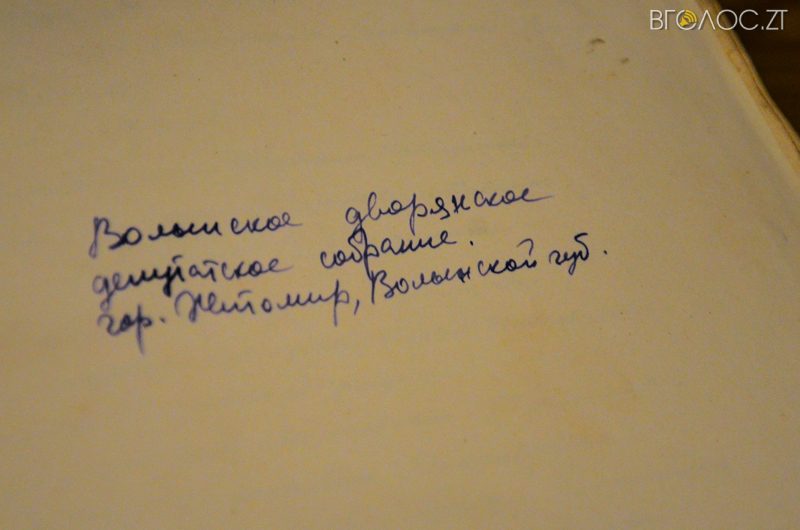 ВГОЛОС.ZT
Волынское дворянское
депутатское собрание.
гор. Житомир, Волынской губ.